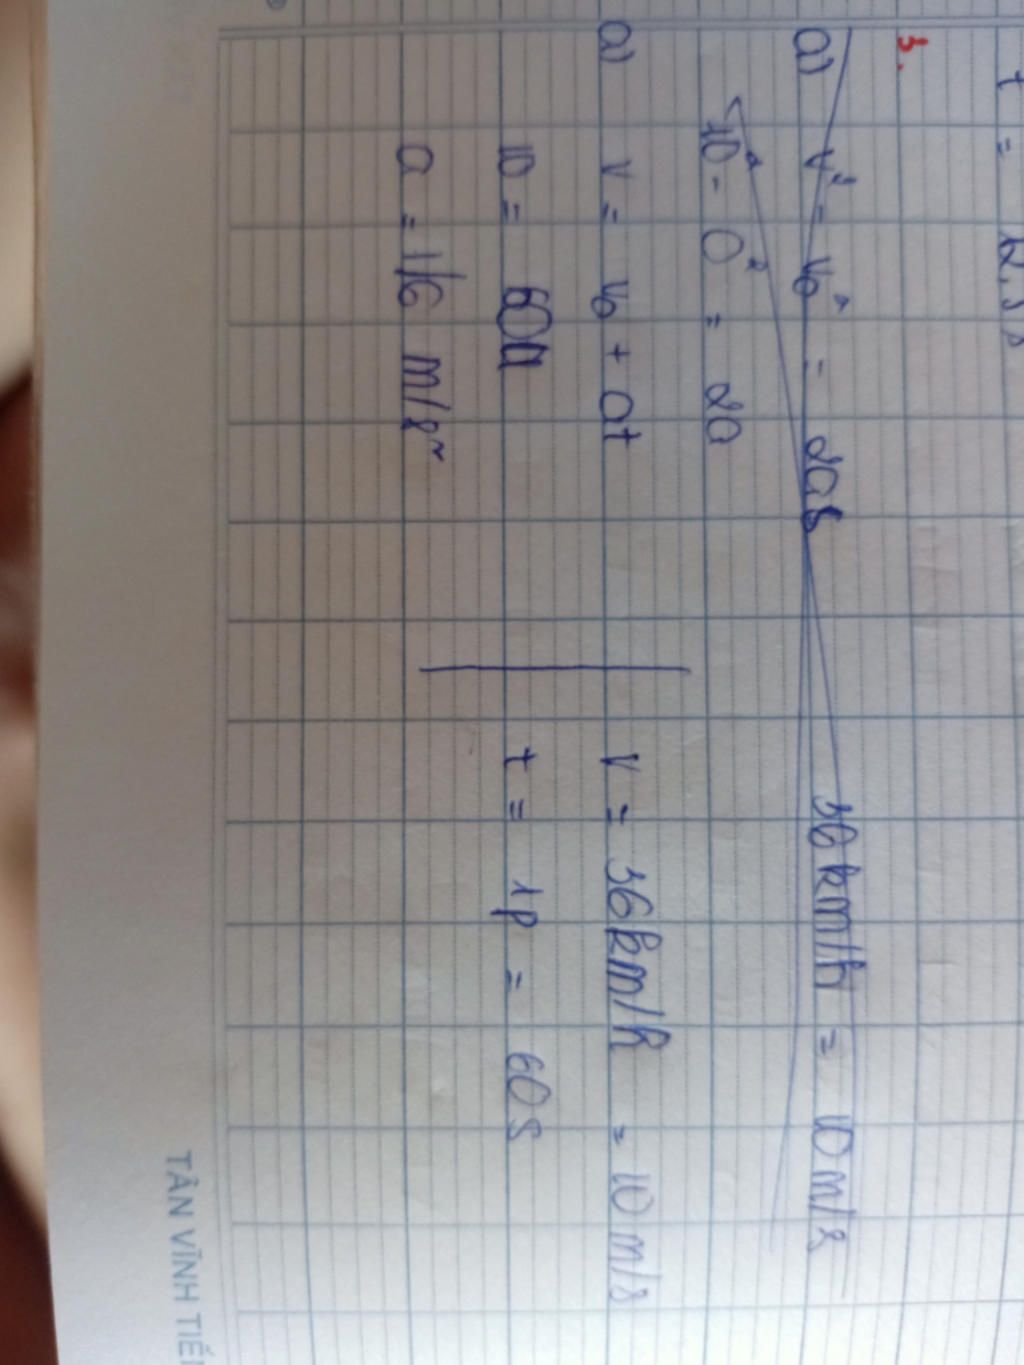 t = 12,5 s
3.
a) v² - v₀² = 2as 36km/h = 10m/s
10² - 0² = 2a
a) v = v₀ + at v = 36km/h = 10m/s
10 = 60a t = 1p = 60s
a = 1/6 m/s²
TÂN VĨNH TIẾN